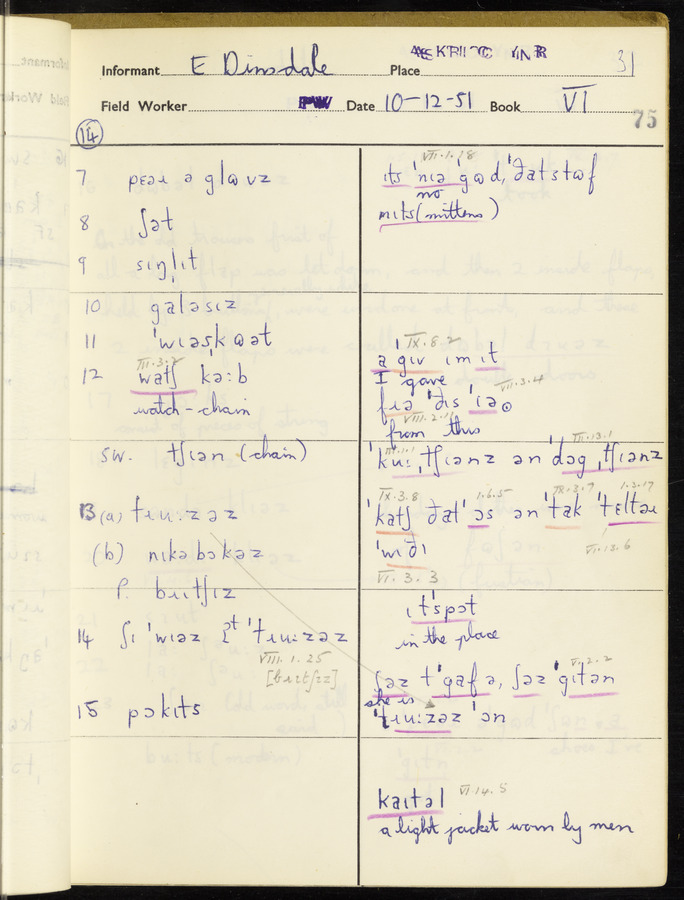 Informant E Dinsdale Place ASKRIGG YNR 31
Field Worker PW Date 10-12-51 Book VI
75
14
7 pɛəɹ ə glɒvz
8 ʃət
9 sɪŋlɪt
10 galəsɪz
11 ˈwɪəskɒət
12 watʃ kəːb
III.3.2
watch-chain
sw. tʃɪən (chain)
13 (a) tɹuːzəz
(b) nɪkəbəkəz
p. bɹɪtʃɪz
14 ʃɪ ˈwɪəz ðt ˈtɹuːzəz
VIII.1.25
[bɹɪtʃɪz]
15 pəkɪts
VII.1.18
ɪts ˈnɪə ˈgɒd, ˈðat stɒf
no
mɪts (mittens)
IX.8.2
a ˈgɪv ɪm ɪt
I gave
VII.3.4
fɹə ˈðɪs ˈɪə
VIII.2.11
from this
III.1.1 III.13.1
ˈkuː ˌtʃɪənz ən ˈdɒg ˌtʃɪənz
IX.3.8 1.6.5 IX.3.7 1.3.17
ˈkatʃ ðat ˈɒs ən ˈtak ˈtɛltəɹ
ˈwɪ ðɪ
VI.13.6
VI.3.3
ɪtˈspɒt
in the place
V.2.2
ʃəz tˈgafə, ʃəz ˈgɪtən
she is
ˈtɹuːzəz ˈɒn
kaɪtəl VI.14.5
a light jacket worn by men